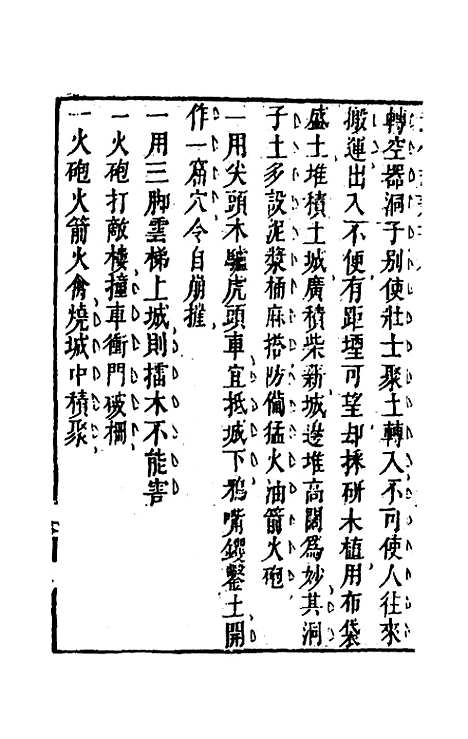 轉空器洞子別使壯士聚土轉入不可使人往來
搬運出入不便有距堙可望却採研木植用布袋
盛土堆積土城廣積柴新城邊堆高闊為妙其洞
子土多設泥漿桶麻搭防備猛火油箭火砲
一用尖頭木驢虎頭車宜抵城下鴉嘴钁鑿土開
作一窟穴令自崩摧
一用三脚雲梯上城則擂木不能害
一火砲打敵樓撞車衝門破柵
一火砲火箭火禽燒城中積聚